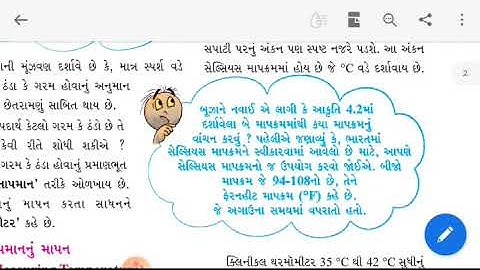 ાની મૂંઝવણ દર્શાવે છે કે, માત્ર સ્પર્શ વડે
ઠંડા કે ગરમ હોવાનું અનુમાન
છેતરામણું સાબિત થાય છે.
પદાર્થ કેટલો ગરમ કે ઠંડો છે તે
કેવી રીતે શોધી શકીએ ?
ગરમ કે ઠંડા હોવાનું પ્રમાણભૂત
તાપમાન' તરીકે ઓળખાય છે.
નનું માપન કરતા સાધનને
મીટર' કહે છે.
પમાનનું માપન
Measuring Temperature)
સપાટી પરનું અંકન પણ સ્પષ્ટ નજરે પડશે. આ અંકન
સેલ્સિયસ માપક્રમમાં હોય છે જે °C વડે દર્શાવાય છે.
બૂઝાને નવાઈ એ લાગી કે આકૃતિ 4.2માં
દર્શાવેલા બે માપક્રમમાંથી કયા માપક્રમનું
વાંચન કરવું ? પહેલીએ જણાવ્યું કે, ભારતમાં
સેલ્સિયસ માપક્રમને સ્વીકારવામાં આવેલો છે માટે, આપણે
સેલ્સિયસ માપક્રમનો જ ઉપયોગ કરવો જોઈએ. બીજો
માપક્રમ જે 94-108નો છે, તેને
ફેરનહીટ માપક્રમ (°F) કહે છે.
જે અગાઉના સમયમાં વપરાતો હતો.
ક્લિનીકલ થરમોમીટર 35 °C થી 42 °C સુધીનું
2